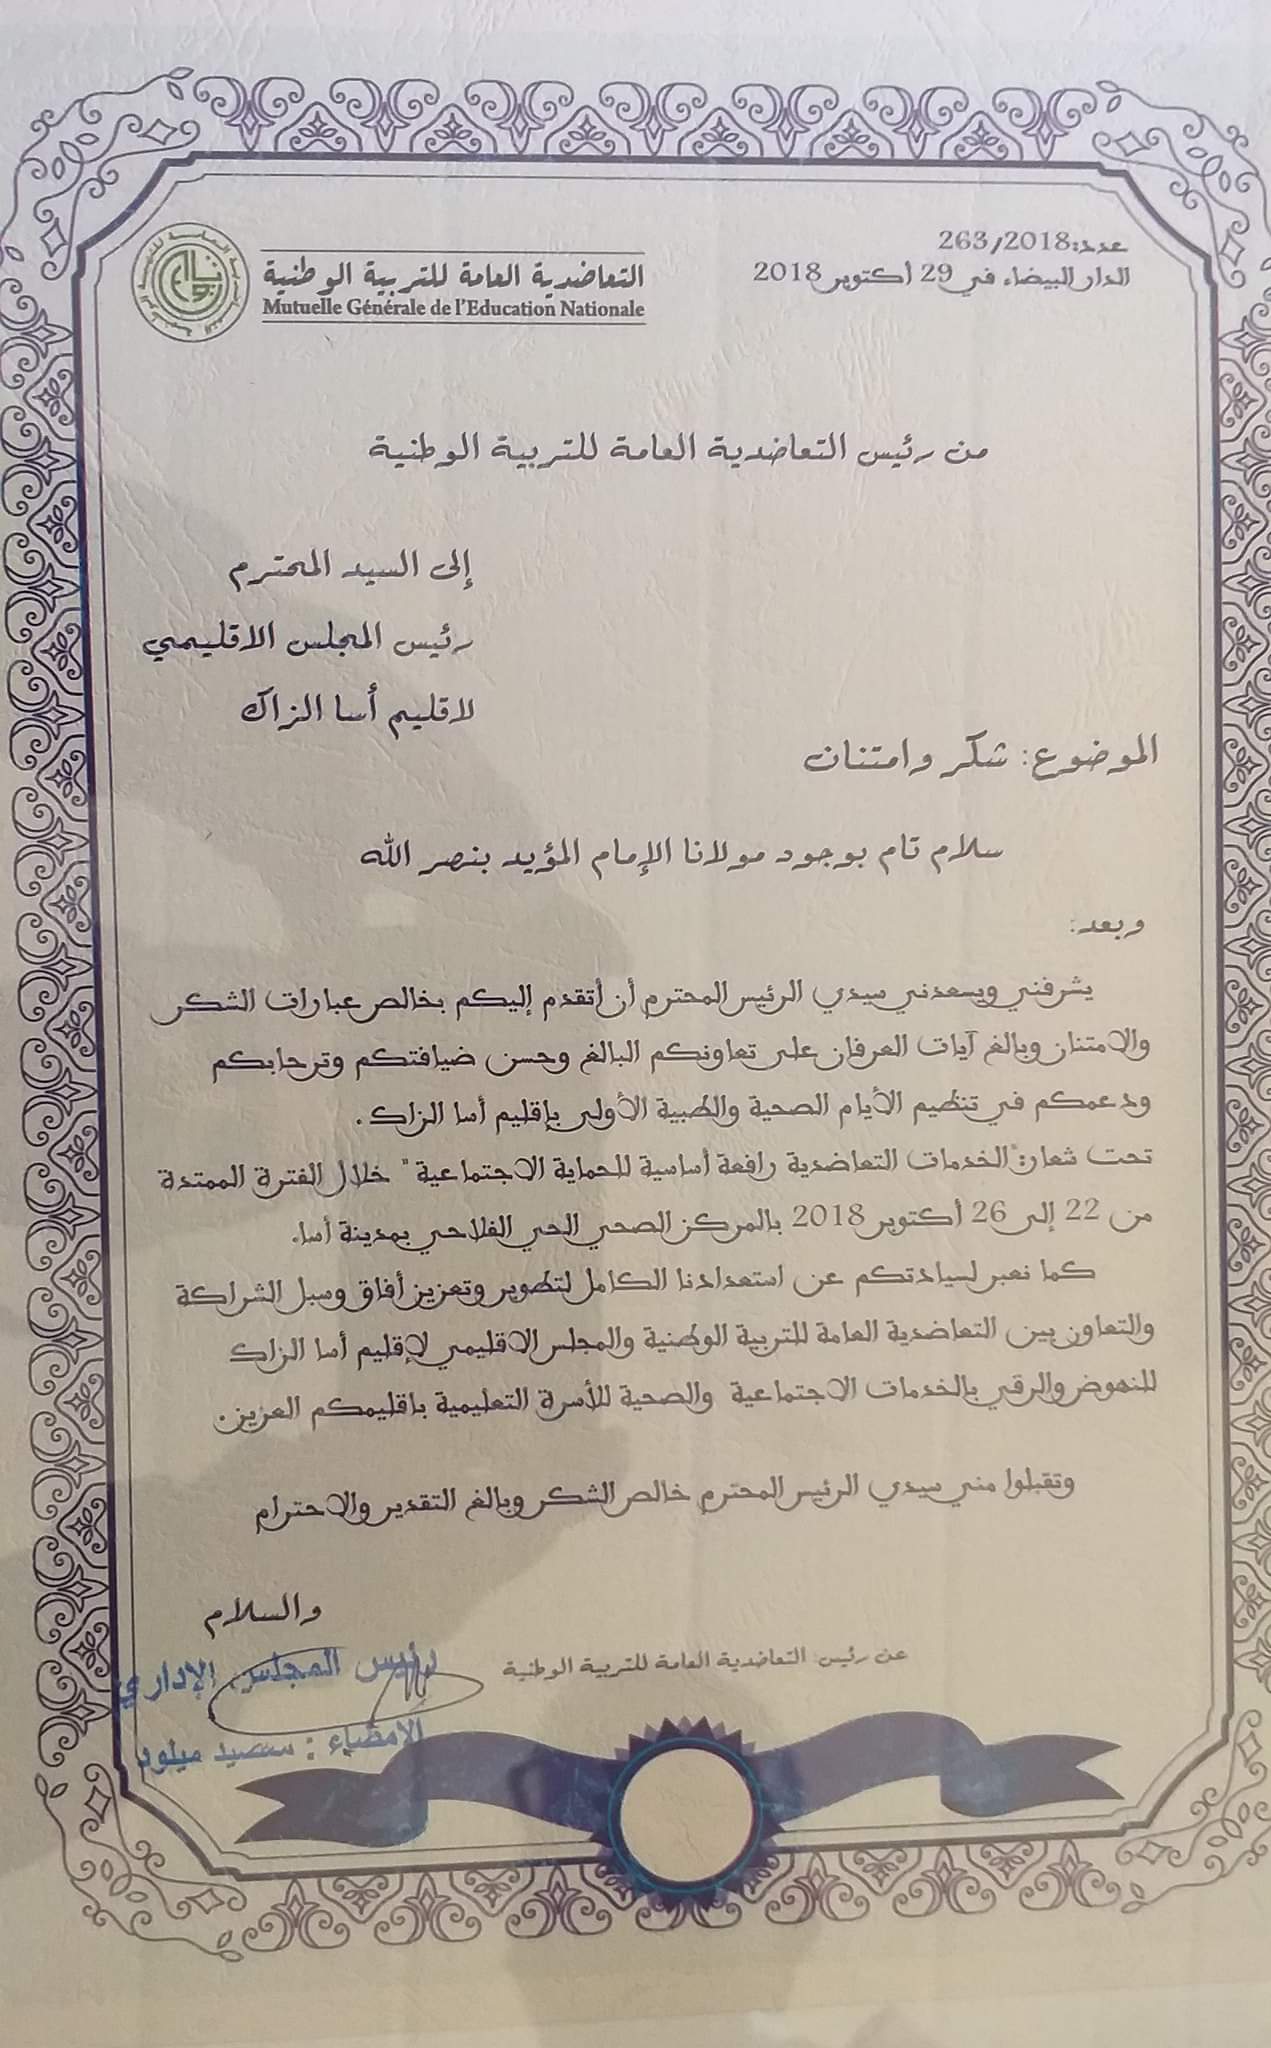 عدد:263/2018
الدار البيضاء في 29 أكتوبر 2018
التعاضدية العامة للتربية الوطنية
Mutuelle Générale de l'Education Nationale
من رئيس التعاضدية العامة للتربية الوطنية
إلى السيد المحترم
رئيس المجلس الاقليمي
لاقليم أسا الزاك
الموضوع: شكر وامتنان
سلام تام بوجود مولانا الإمام المؤيد بنصر الله
وبعد:
يشرفني ويسعدني سيدي الرئيس المحترم أن أتقدم إليكم بخالص عبارات الشكر
والامتنان وبالغ آيات العرفان على تعاونكم البالغ وحسن ضيافتكم وترحابكم
ودعمكم في تنظيم الأيام الصحية والطبية الأولى بإقليم أسا الزاك.
تحت شعار:"الخدمات التعاضدية رافعة أساسية للحماية الاجتماعية" خلال الفترة الممتدة
من 22 إلى 26 أكتوبر 2018 بالمركز الصحي الحي الفلاحي بمدينة أسا.
كما نعبر لسيادتكم عن استعدادنا الكامل لتطوير وتعزيز أفاق وسبل الشراكة
والتعاون بين التعاضدية العامة للتربية الوطنية والمجلس الاقليمي لإقليم أسا الزاك
للنهوض والرقي بالخدمات الاجتماعية والصحية للأسرة التعليمية باقليمكم العزيز.
وتقبلوا مني سيدي الرئيس المحترم خالص الشكر وبالغ التقدير والاحترام
والسلام
عن رئيس التعاضدية العامة للتربية الوطنية
رئيس المجلس الإداري
الامضاء : سعيد ميلود